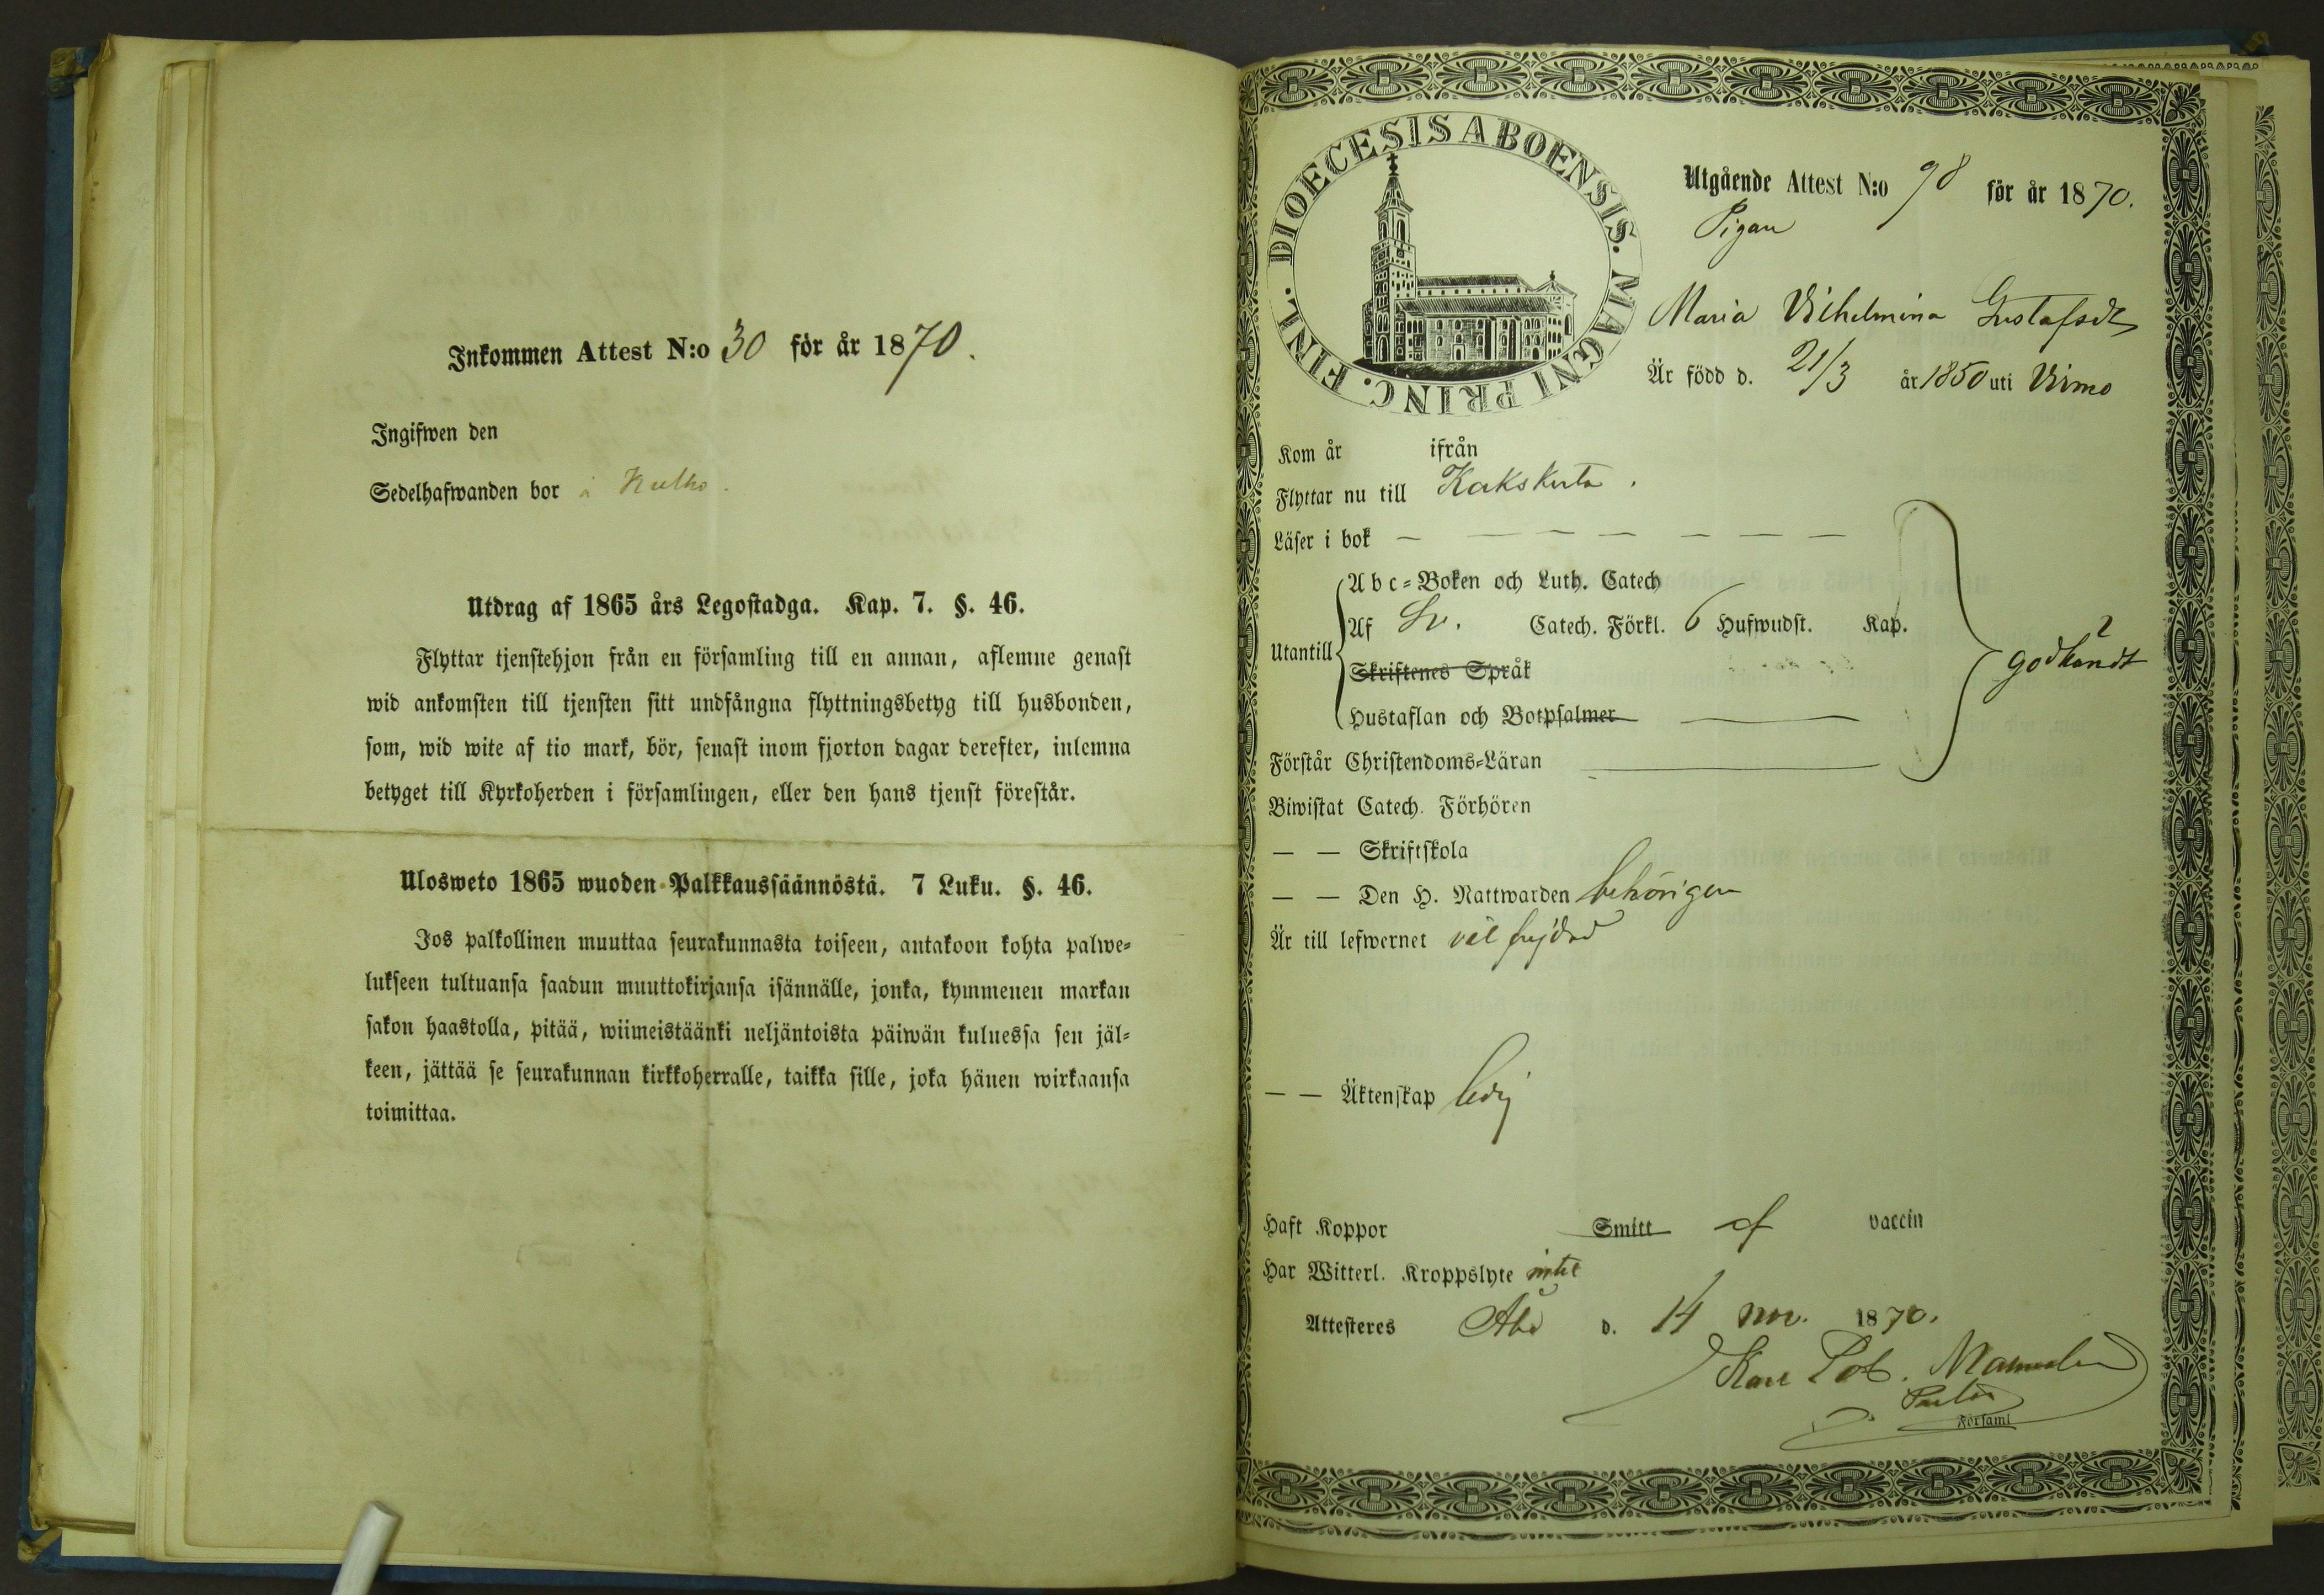 Inkommen Attest N:o 30 för år 1870.
Ingifwen den
Sedelhafwanden bor å Kulho.
Utdrag af 1865 års Legostadga. Kap. 7. §. 46.
Flyttar tjenstehjon från en församling till en annan, aflemne genast
wid ankomsten till tjensten sitt undfångna flyttningsbetyg till husbonden,
som, wid wite af tio mark, bör, senast inom fjorton dagar derefter, inlemna
betyget till Kyrkoherden i församlingen, eller den hans tjenst förestår.
Ulosweto 1865 wuoden Palkkaussäännöstä. 7 Luku. §. 46.
Jos palkollinen muuttaa seurakunnasta toiseen, antakoon kohta palwe=
lukseen tultuansa saadun muuttokirjansa isännälle, jonka, kymmenen markan
sakon haastolla, pitää, wiimeistäänki neljäntoista päiwän kuluessa sen jäl=
keen, jättää se seurakunnan kirkkoherralle, taikka sille, joka hänen wirkaansa
toimittaa.
DIOECESIS ABOENSIS. MAGNI PRINC. FINL.
Utgående Attest N:o 98 för år 1870.
Pigan
Maria Vilhelmina Gustafsdr
Är född d. 21/3 år 1850 uti Virmo
Kom år ifrån
Flyttar nu till Kakskerta.
Läser i bok — — — — — — —
Abc=Boken och Luth. Catech
Utantill Af Sv. Catech. Förkl. 6 Hufwudst. Kap.
godkändt
Skriftenes Språk
Hustaflan och Botpsalmer
Förstår Christendoms=Läran
Biwistat Catech. Förhören
— — Skriftskola
— — Den H. Nattwarden behörigen
Är till lefwernet väl frejdad
— — Äktenskap ledig
Haft Koppor Smitt af vaccin
Har Witterl. Kroppslyte intet
Attesteres Åbo d. 14 nov. 1870.
Karl Rob. Malmström
Församl